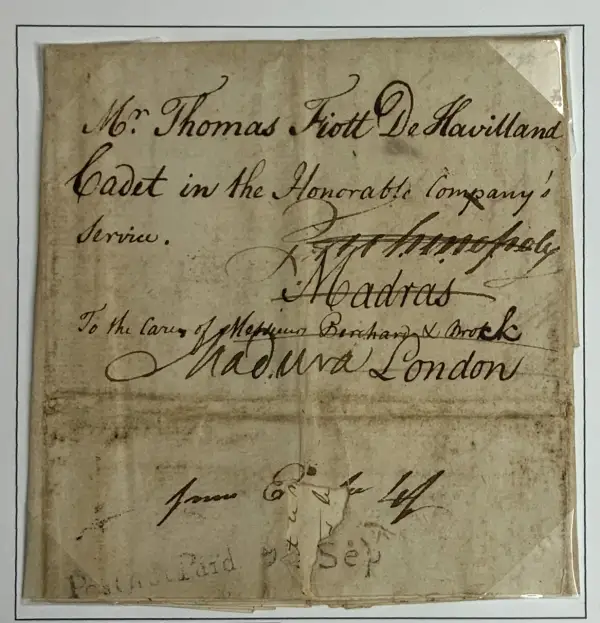 Mr. Thomas Fiott De Havilland
Cadet in the Honorable Company's
Service.
Trichinopoly
Madras
To the Care, of Messieurs & Brock
Madura London
from
Post not Paid Sep